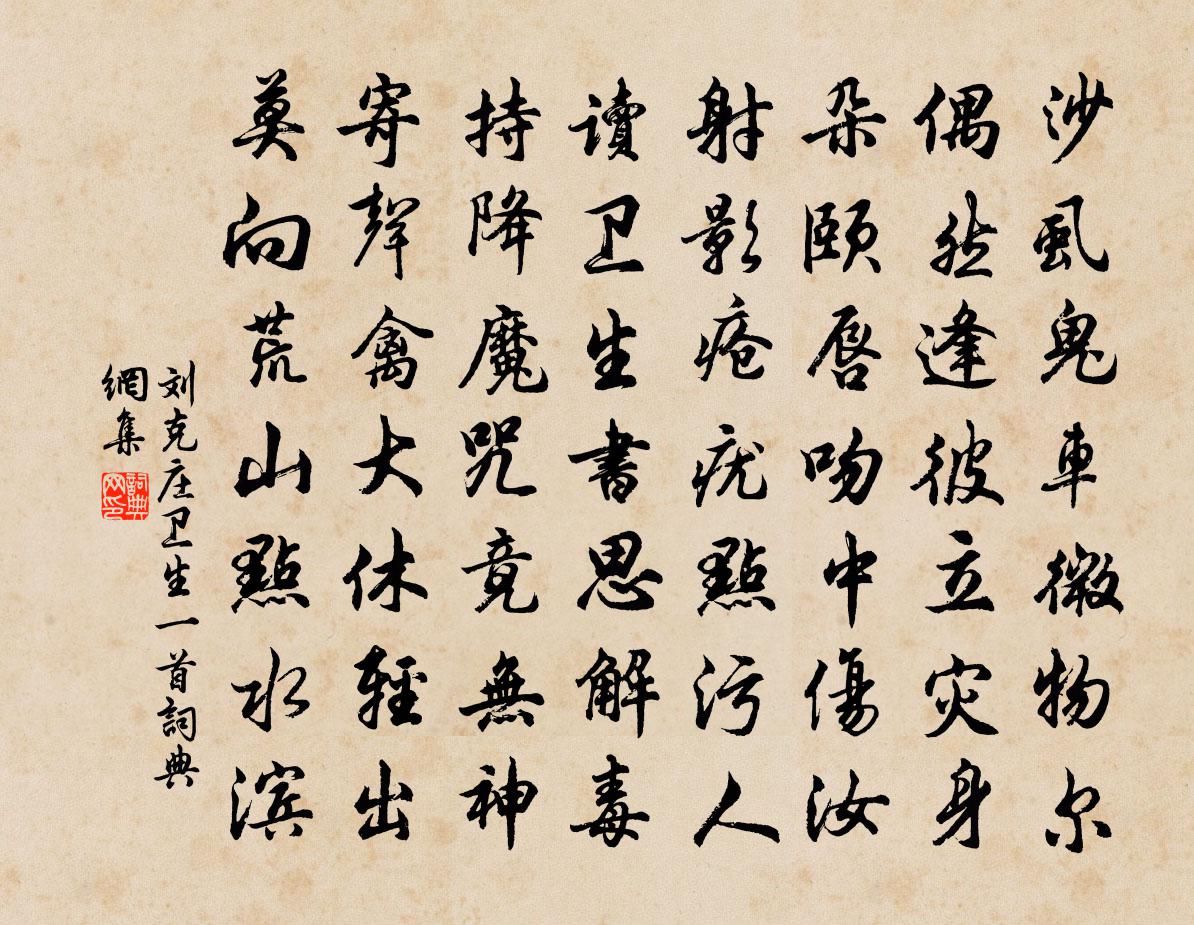 沙虱鬼車微物尔
偶然逢彼立灾身
朵頤唇吻中傷汝
射影疮疣點污人
讀卫生書思解毒
持降魔咒竟無神
寄聲禽大休輕出
莫向荒山點水滨
刘克庄卫生一首詞典
網集
詞典
网印